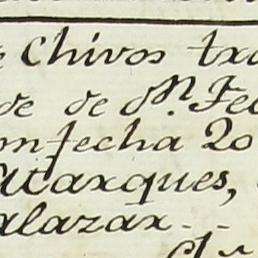 e Chivos txa
de de Dⁿ. Fe
on fecha 20
Ataxques,
alazax.